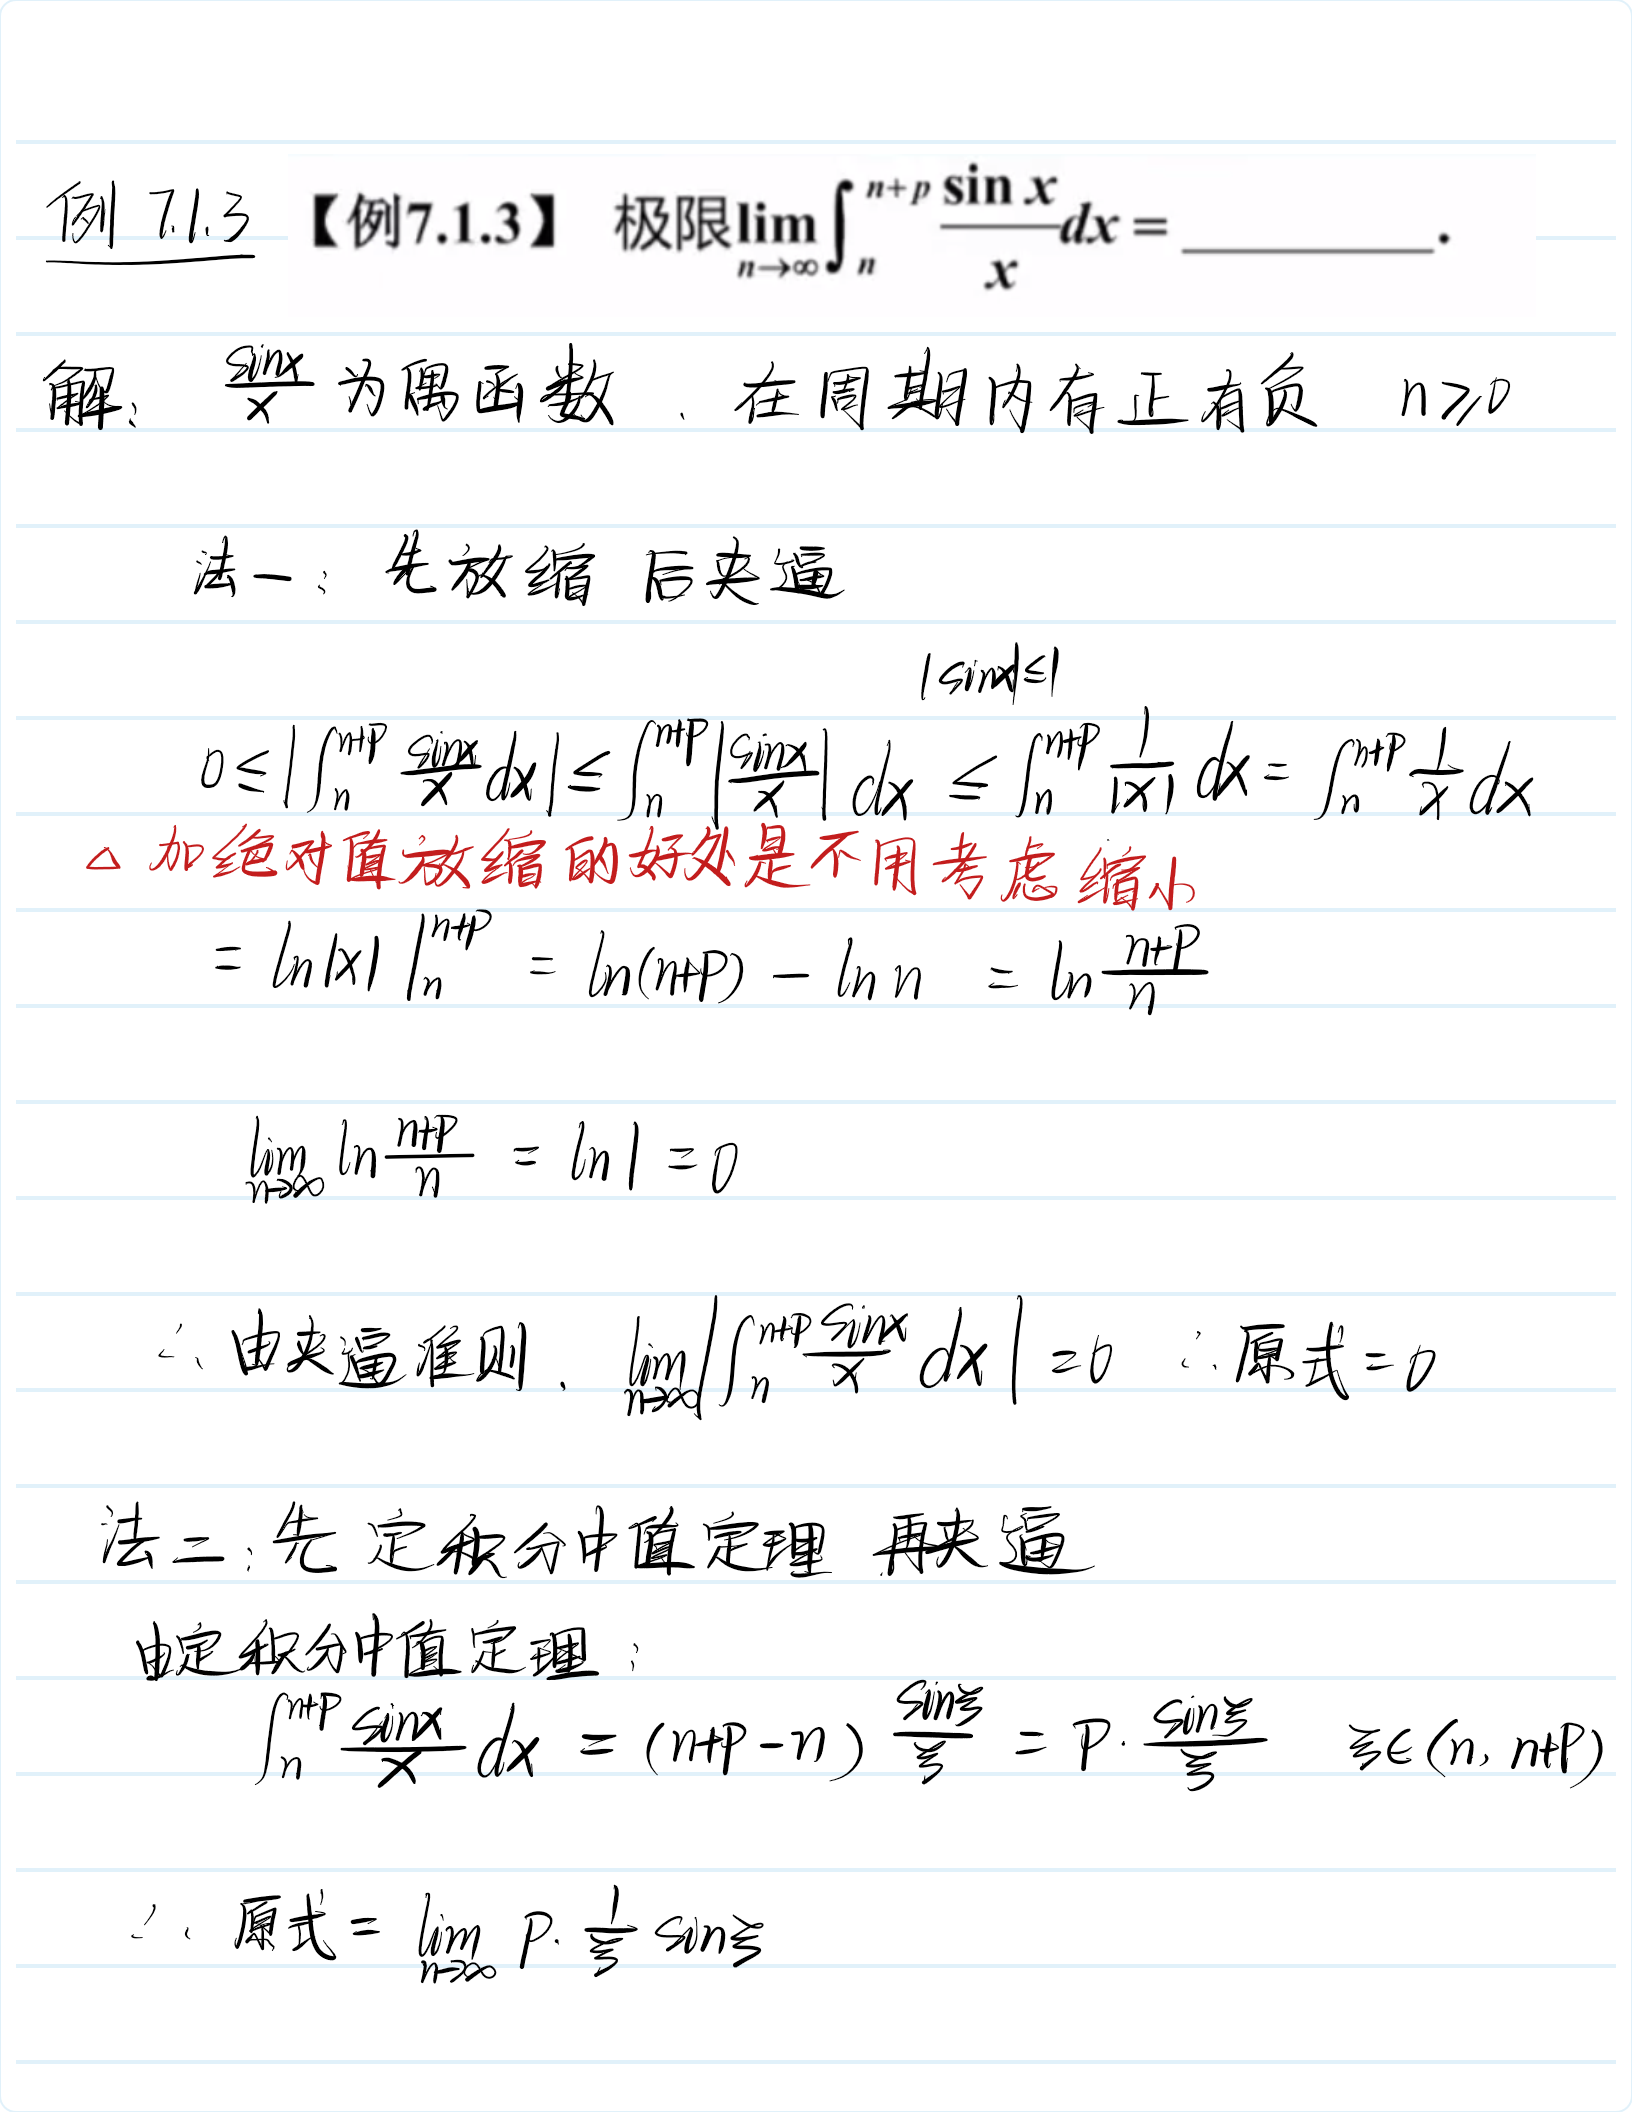 例 7.1.3 【例7.1.3】 极限 lim_{n→∞} ∫_n^{n+p} (sin x)/x dx = ________.
解: sinx/x 为偶函数、在周期内有正有负 n≥0
法一: 先放缩 后夹逼
|sinx|≤1
0≤|∫_n^{n+p} sinx/x dx|≤∫_n^{n+p} |sinx/x| dx ≤ ∫_n^{n+p} 1/|x| dx = ∫_n^{n+p} 1/x dx
△ 加绝对值放缩的好处是不用考虑缩小
= ln|x| |_n^{n+p} = ln(n+p) - ln n = ln (n+p)/n
lim_{n→∞} ln (n+p)/n = ln1 = 0
∴ 由夹逼准则、 lim_{n→∞} |∫_n^{n+p} sinx/x dx| = 0 ∴原式=0
法二: 先定积分中值定理 再夹逼
由定积分中值定理:
∫_n^{n+p} sinx/x dx = (n+p-n) sinξ/ξ = p·sinξ/ξ ξ∈(n, n+p)
∴ 原式= lim_{n→∞} p·1/ξ sinξ